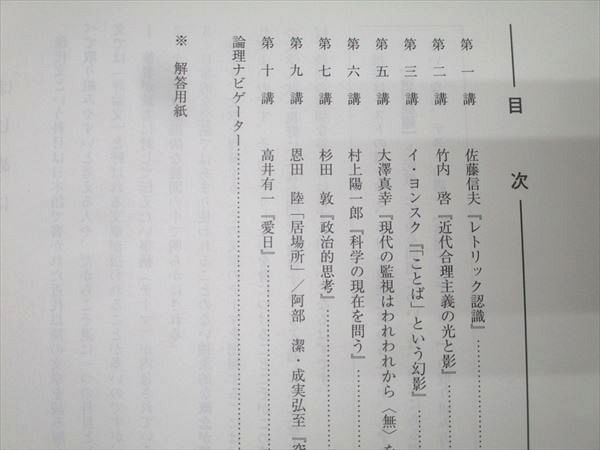 目次
第一講 佐藤信夫『レトリック認識』
第二講 竹内 啓『近代合理主義の光と影』
第三講 イ・ヨンスク『「ことば」という幻影』
第五講 大澤真幸『現代の監視はわれわれから〈無〉を
第六講 村上陽一郎『科学の現在を問う』
第七講 杉田 敦『政治的思考』
第九講 恩田 陸「居場所」／阿部 潔・成実弘至『空
第十講 高井有一『愛日』
論理ナビゲーター
※ 解答用紙